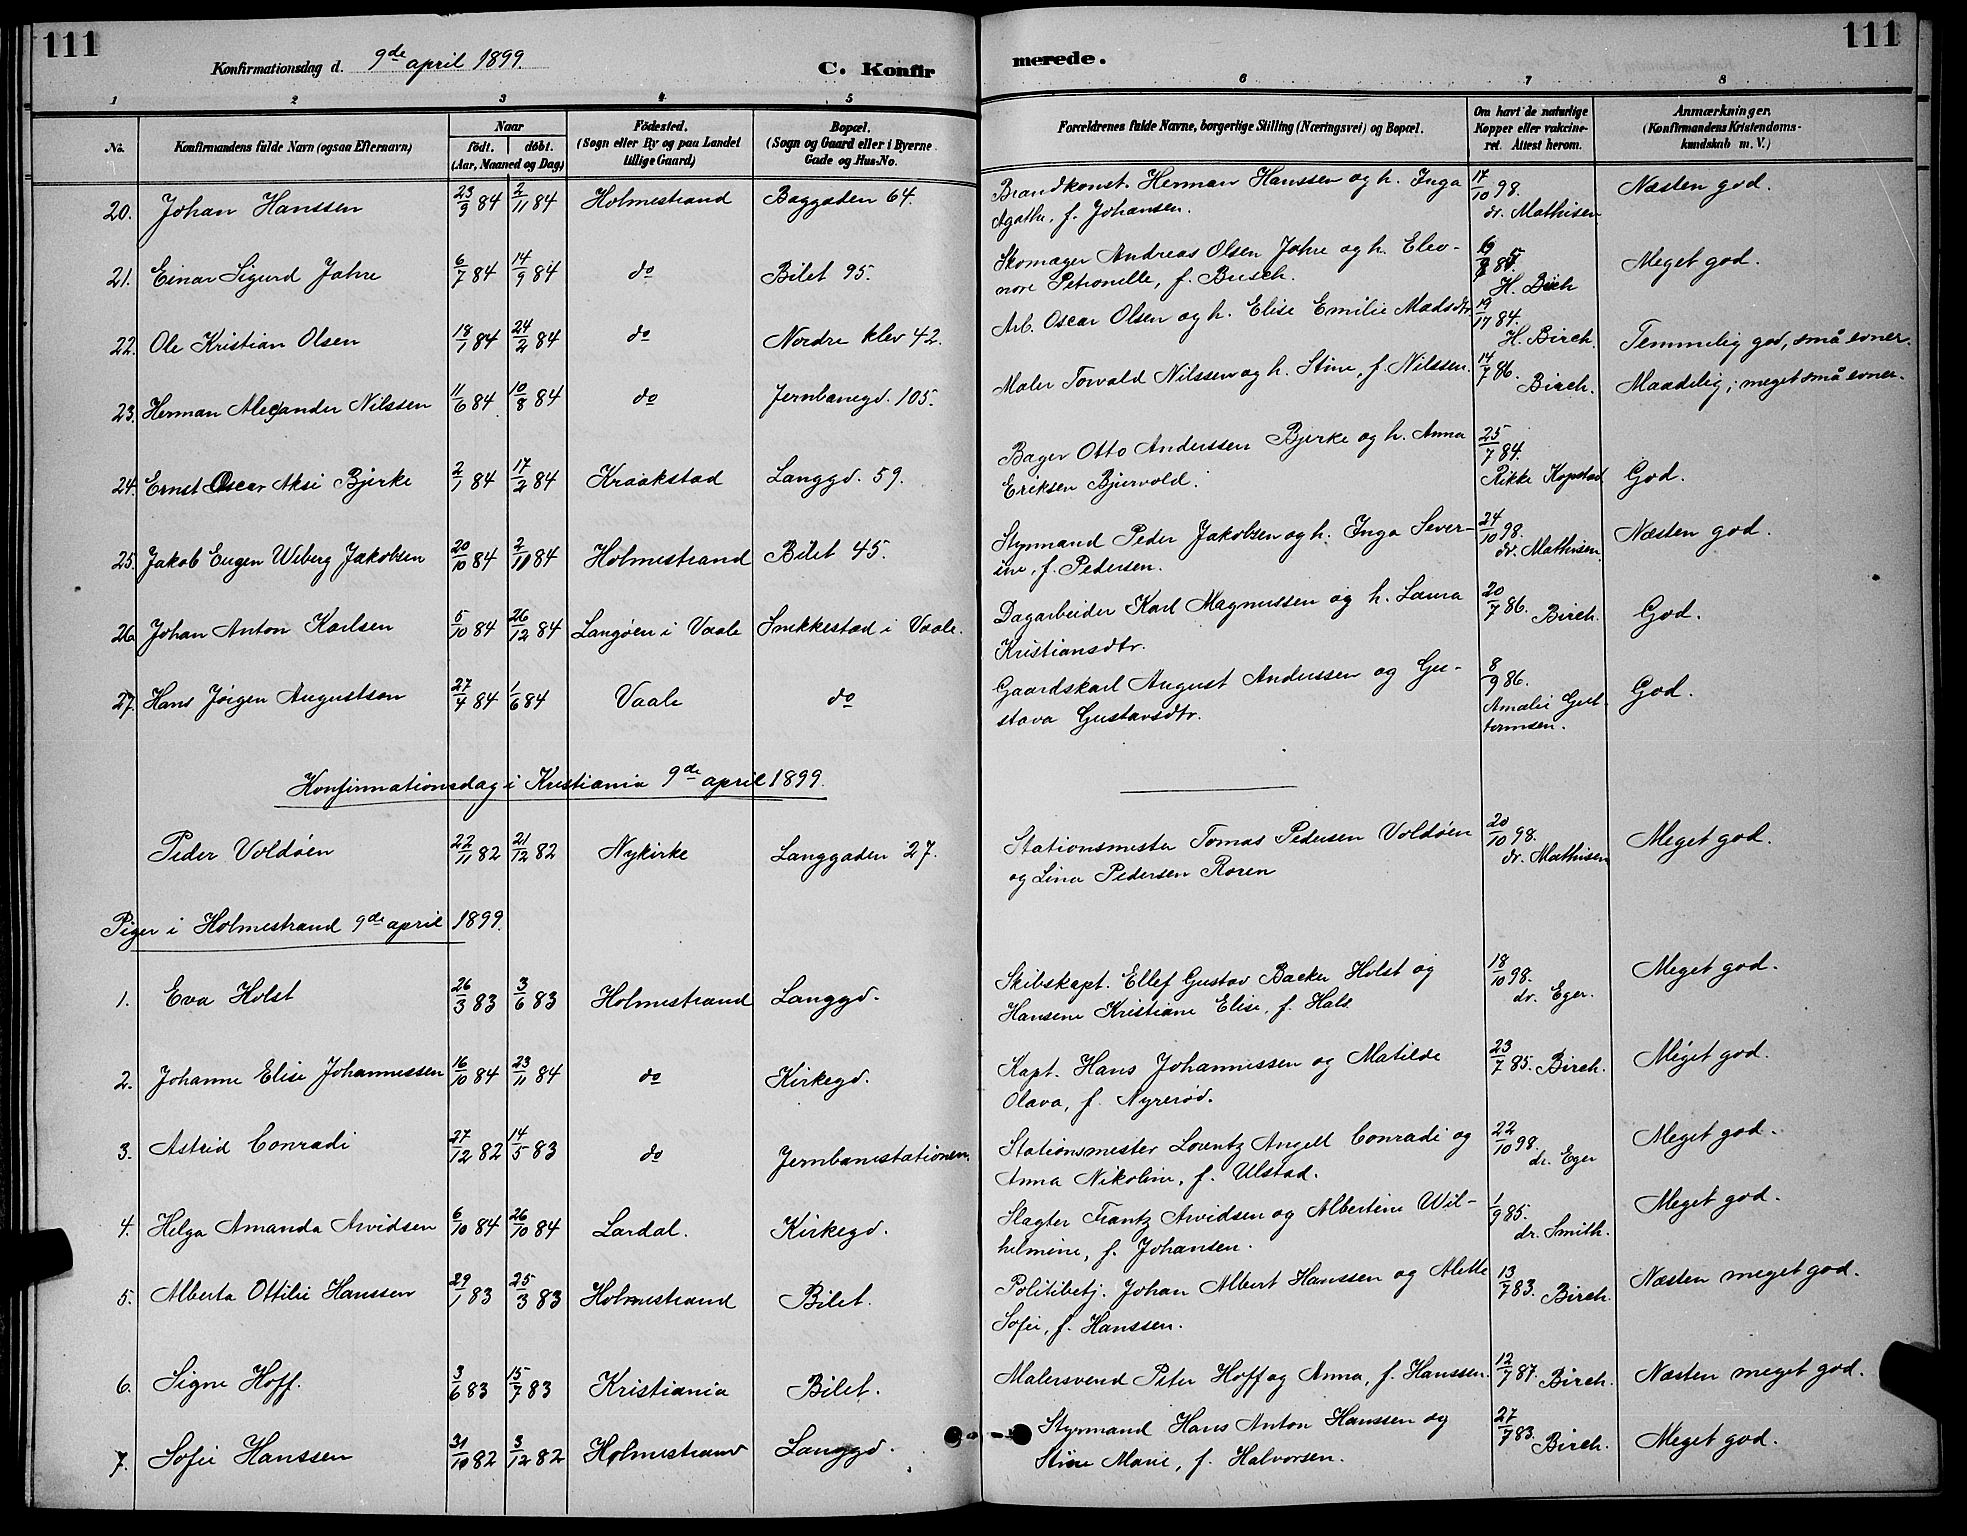 111
Konfirmationsdag d. 9de april 1899. C. Konfirmerede. 111
1 2 3 4 5 6 7 8
No. Konfirmandens fulde Navn (ogsaa Efternavn) Naar födt. döbt. (Aar, Maaned og Dag) Födested. (Sogn eller By og paa Landet tillige Gaard) Bopæl. (Sogn og Gaard eller i Byerne Gade og Hus-No. Forældrenes fulde Navne, borgerlige Stilling (Næringsvei) og Bopæl. Om havt de naturlige Kopper eller vakcineret. Attest herom. Anmærkninger. (Konfirmandens Kristendomskundskab m. V.)
20. Johan Hanssen 23/9 84 2/11 84 Holmestrand Baggaden 64. Brandkonst. Herman Hanssen og h. Inga 17/10 98. Næsten god.
Agathe, f. Johansen. dr. Mathisen
21. Einar Sigurd Jahre 6/7 84 14/9 84 do Bilet 95. Skomager Andreas Olsen Jahre og h. Eleo- Meget god.
nore Petronelle, f. Busch. H. Birch
22. Ole Kristian Olsen 18/1 84 24/2 84 do Nordre klev 42. Arb. Oscar Olsen og h. Elise Emilie Madsdtr 84. H. Birch. Temmelig god, små evner.
23. Herman Alexander Nilssen 11/6 84 10/8 84 do Jernbanegd. 105. Maler Torvald Nilssen og h. Stine, f. Nilssen. 14/7 86. Birch. Maadelig; meget små evner.
24. Ernst Oscar Aksi Bjerke 2/1 84 17/2 84 Kraakstad Langgd. 59. Bager Otto Anderssen Bjerke og h. Anna 25/7 84.
Eriksen Bjervold. Rikke Kopstad God.
25. Jakob Eugen Wiberg Jakobsen 20/10 84 2/11 84 Holmestrand Bilet 45. Styrmand Peder Jakobsen og h. Inga Sever- 24/10 98. Næsten god.
ine, f. Pedersen. dr. Mathisen
26. Johan Anton Karlsen 5/10 84 26/12 84 Langøen i Vaale Smekkestad i Vaale. Dagarbeider Karl Magnussen og h. Laura 20/7 86. Birch. God.
Kristiansdtr.
27. Hans Jørgen Augustson 27/4 84 1/6 84 Vaale do Gaardskarl August Anderssen og Gu- 8/9 86. God.
stava Gustavsdtr. Amalie Gut-
tormsen.
Konfirmationsdag i Kristiania 9de april 1899.
Peder Voldøen 22/11 82 21/12 82 Nykirke Langgaden 27. Stationsmester Tomas Pedersen Voldøen 20/10 98. Meget god.
og Lina Pedersen Roren dr. Mathisen
Piger i Holmestrand 9de april 1899.
1. Eva Holst 26/3 83 3/6 83 Holmestrand Langgd. Skibskapt. Ellef Gustav Backer Holst og 18/10 98. Meget god.
Hansene Kristiane Elise, f. Hals dr. Eger.
2. Johanne Elise Johannessen 16/10 84 23/11 84 do Kirkegd. Kapt. Hans Johannissen og Matilde 23/7 85. Birch. Meget god.
Olava, f. Nyrerød.
3. Astrid Conradi 27/12 82 14/5 83 do Jernbanestationen. Stationsmester Lorentz Angell Conradi og 22/10 98. Meget god.
Anna Nikoline, f. Ulstad. dr. Eger
4. Helga Amanda Arvidsen 6/10 84 26/10 84 Lardal. Kirkegd. Slagter Frantz Arvidsen og Albertine Wil- 1/9 85. Meget god.
helmine, f. Johansen. dr. Smith.
5. Alberta Ottilie Hanssen 29/1 83 25/3 83 Holmestrand Bilet. Politibetj. Johan Albert Hanssen og Alette 13/7 83. Birch. Næsten meget god.
Sofie, f. Hanssen.
6. Signe Hoff. 3/6 83 15/7 83 Kristiania Bilet. Malersvend Peter Hoff og Anna, f. Hanssen. 12/7 87. Birch. Næsten meget god.
7. Sofie Hanssen 31/10 82 3/12 82 Holmestrand Langgd. Styrmand Hans Anton Hanssen og 27/7 83. Birch. Meget god.
Stine Marie, f. Halvorsen.